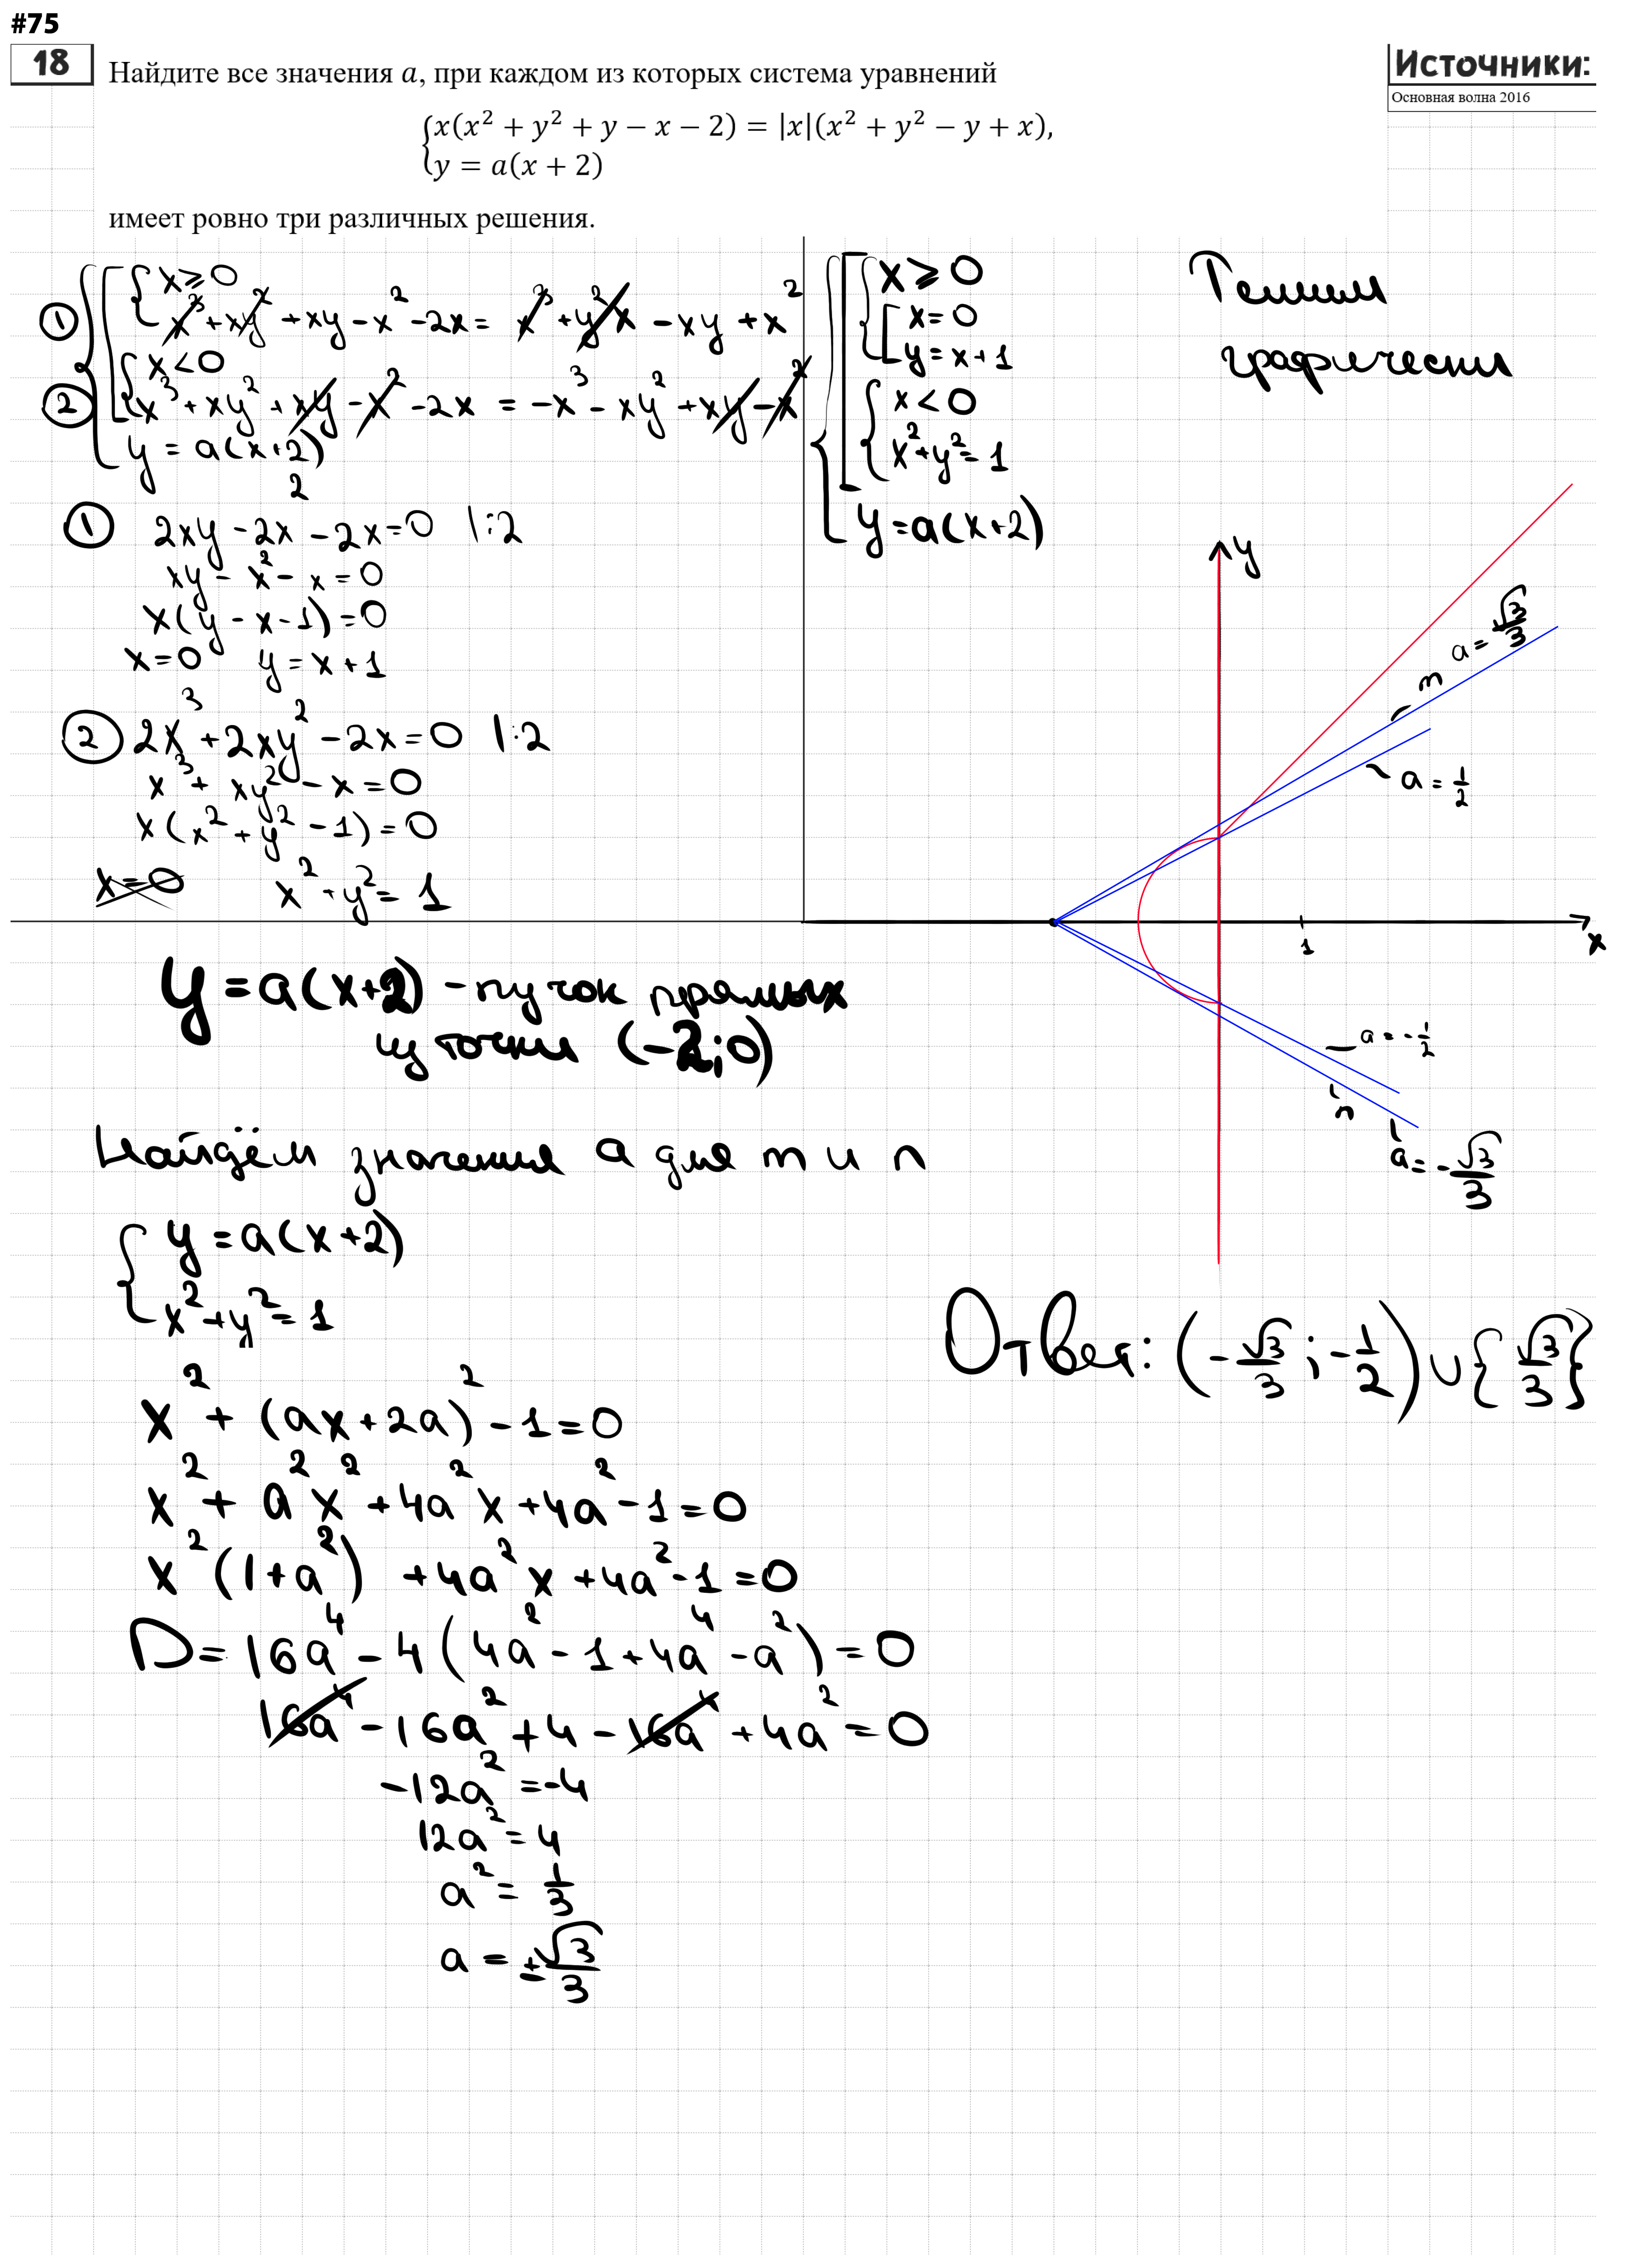 #75
18
Найдите все значения a, при каждом из которых система уравнений
Источники:
Основная волна 2016
{x(x² + y² + y − x − 2) = |x|(x² + y² − y + x),
y = a(x + 2)
имеет ровно три различных решения.
① x ≥ 0
x³ + xy² + xy − x² − 2x = x³ + y²x − xy + x²
x < 0
② x³ + xy² + xy − x² − 2x = −x³ − xy² + xy − x²
y = a(x+2)
① 2xy − 2x² − 2x = 0 |:2
xy − x² − x = 0
x(y − x − 1) = 0
x = 0 y = x + 1
② 2x³ + 2xy² − 2x = 0 |:2
x³ + xy² − x = 0
x(x² + y² − 1) = 0
x = 0 x² + y² = 1
x ≥ 0
x = 0
y = x + 1
x < 0
x² + y² = 1
y = a(x+2)
Решим
графически
y
m a = √3/3
a = 1/2
1
x
a = −1/2
n
a = −√3/3
y = a(x+2) – пучок прямых
из точки (−2;0)
Найдём значения a для m и n
y = a(x+2)
x² + y² = 1
x² + (ax + 2a)² − 1 = 0
x² + a²x² + 4a²x + 4a² − 1 = 0
x²(1 + a²) + 4a²x + 4a² − 1 = 0
D = 16a⁴ − 4(4a² − 1 + 4a⁴ − a²) = 0
16a⁴ − 16a² + 4 − 16a⁴ + 4a² = 0
−12a² = −4
12a² = 4
a² = 1/3
a = ±√3/3
Ответ: (−√3/3 ; −1/2) ∪ {√3/3}